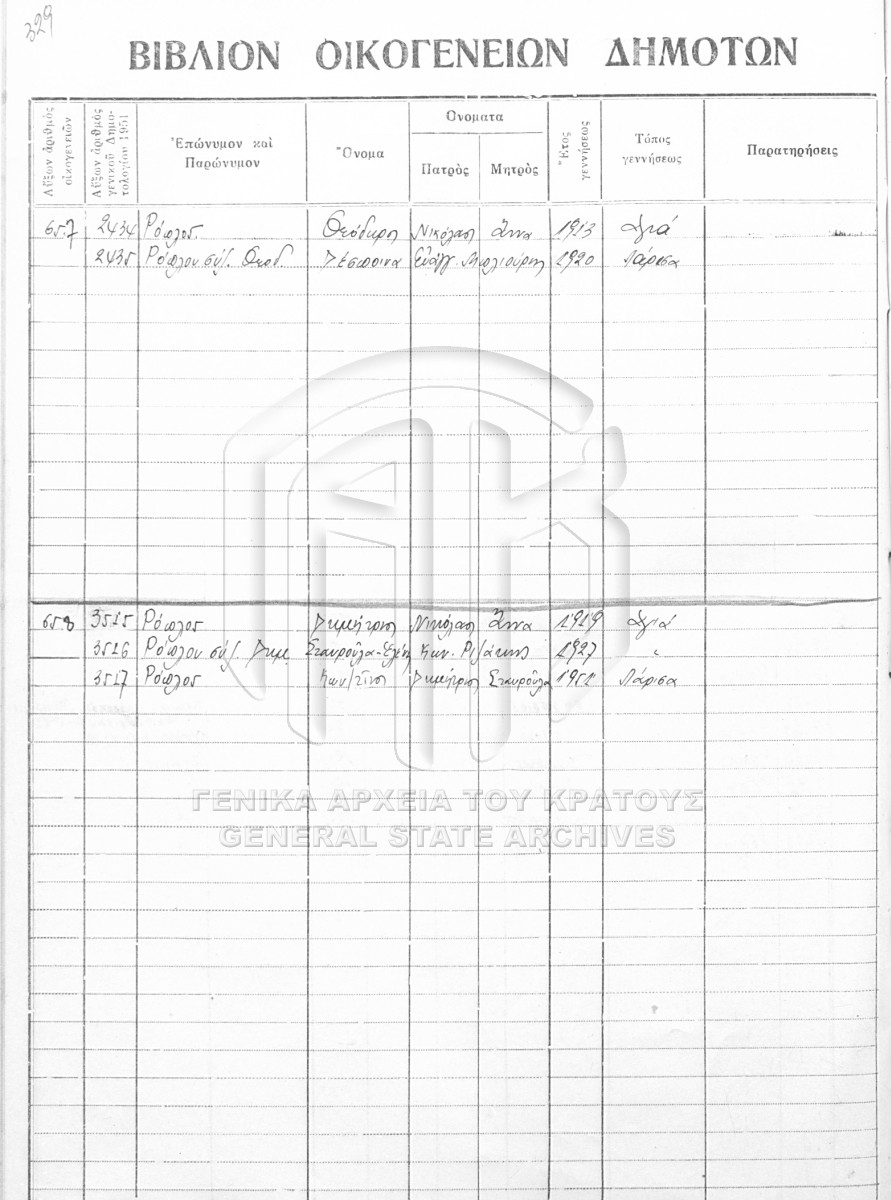 329
ΒΙΒΛΙΟΝ ΟΙΚΟΓΕΝΕΙΩΝ ΔΗΜΟΤΩΝ
Αὔξων ἀριθμὸς οἰκογενειῶν
Αὔξων ἀριθμὸς γενικοῦ Δημοτολογίου 1951
Ἐπώνυμον καὶ Παρώνυμον
Ὄνομα
Ὀνόματα
Πατρὸς Μητρὸς
Ἔτος γεννήσεως
Τόπος γεννήσεως
Παρατηρήσεις
657 2434 Νικόλαος Ἄννα 1913 Ἁγιά
2435 συζ. Θεοδ. Δέσποινα Εὐάγγ. 1920 Λάρισα
658 3515 Δημήτριος Νικόλαος Ἄννα 1919 Ἁγιά
3516 συζ. Δημ. Σταυρούλα-Ἑλένη Κων. 1927 "
3517 Κων/τῖνος Δημήτριος Σταυρούλα 1951 Λάρισα
ΓΕΝΙΚΑ ΑΡΧΕΙΑ ΤΟΥ ΚΡΑΤΟΥΣ
GENERAL STATE ARCHIVES